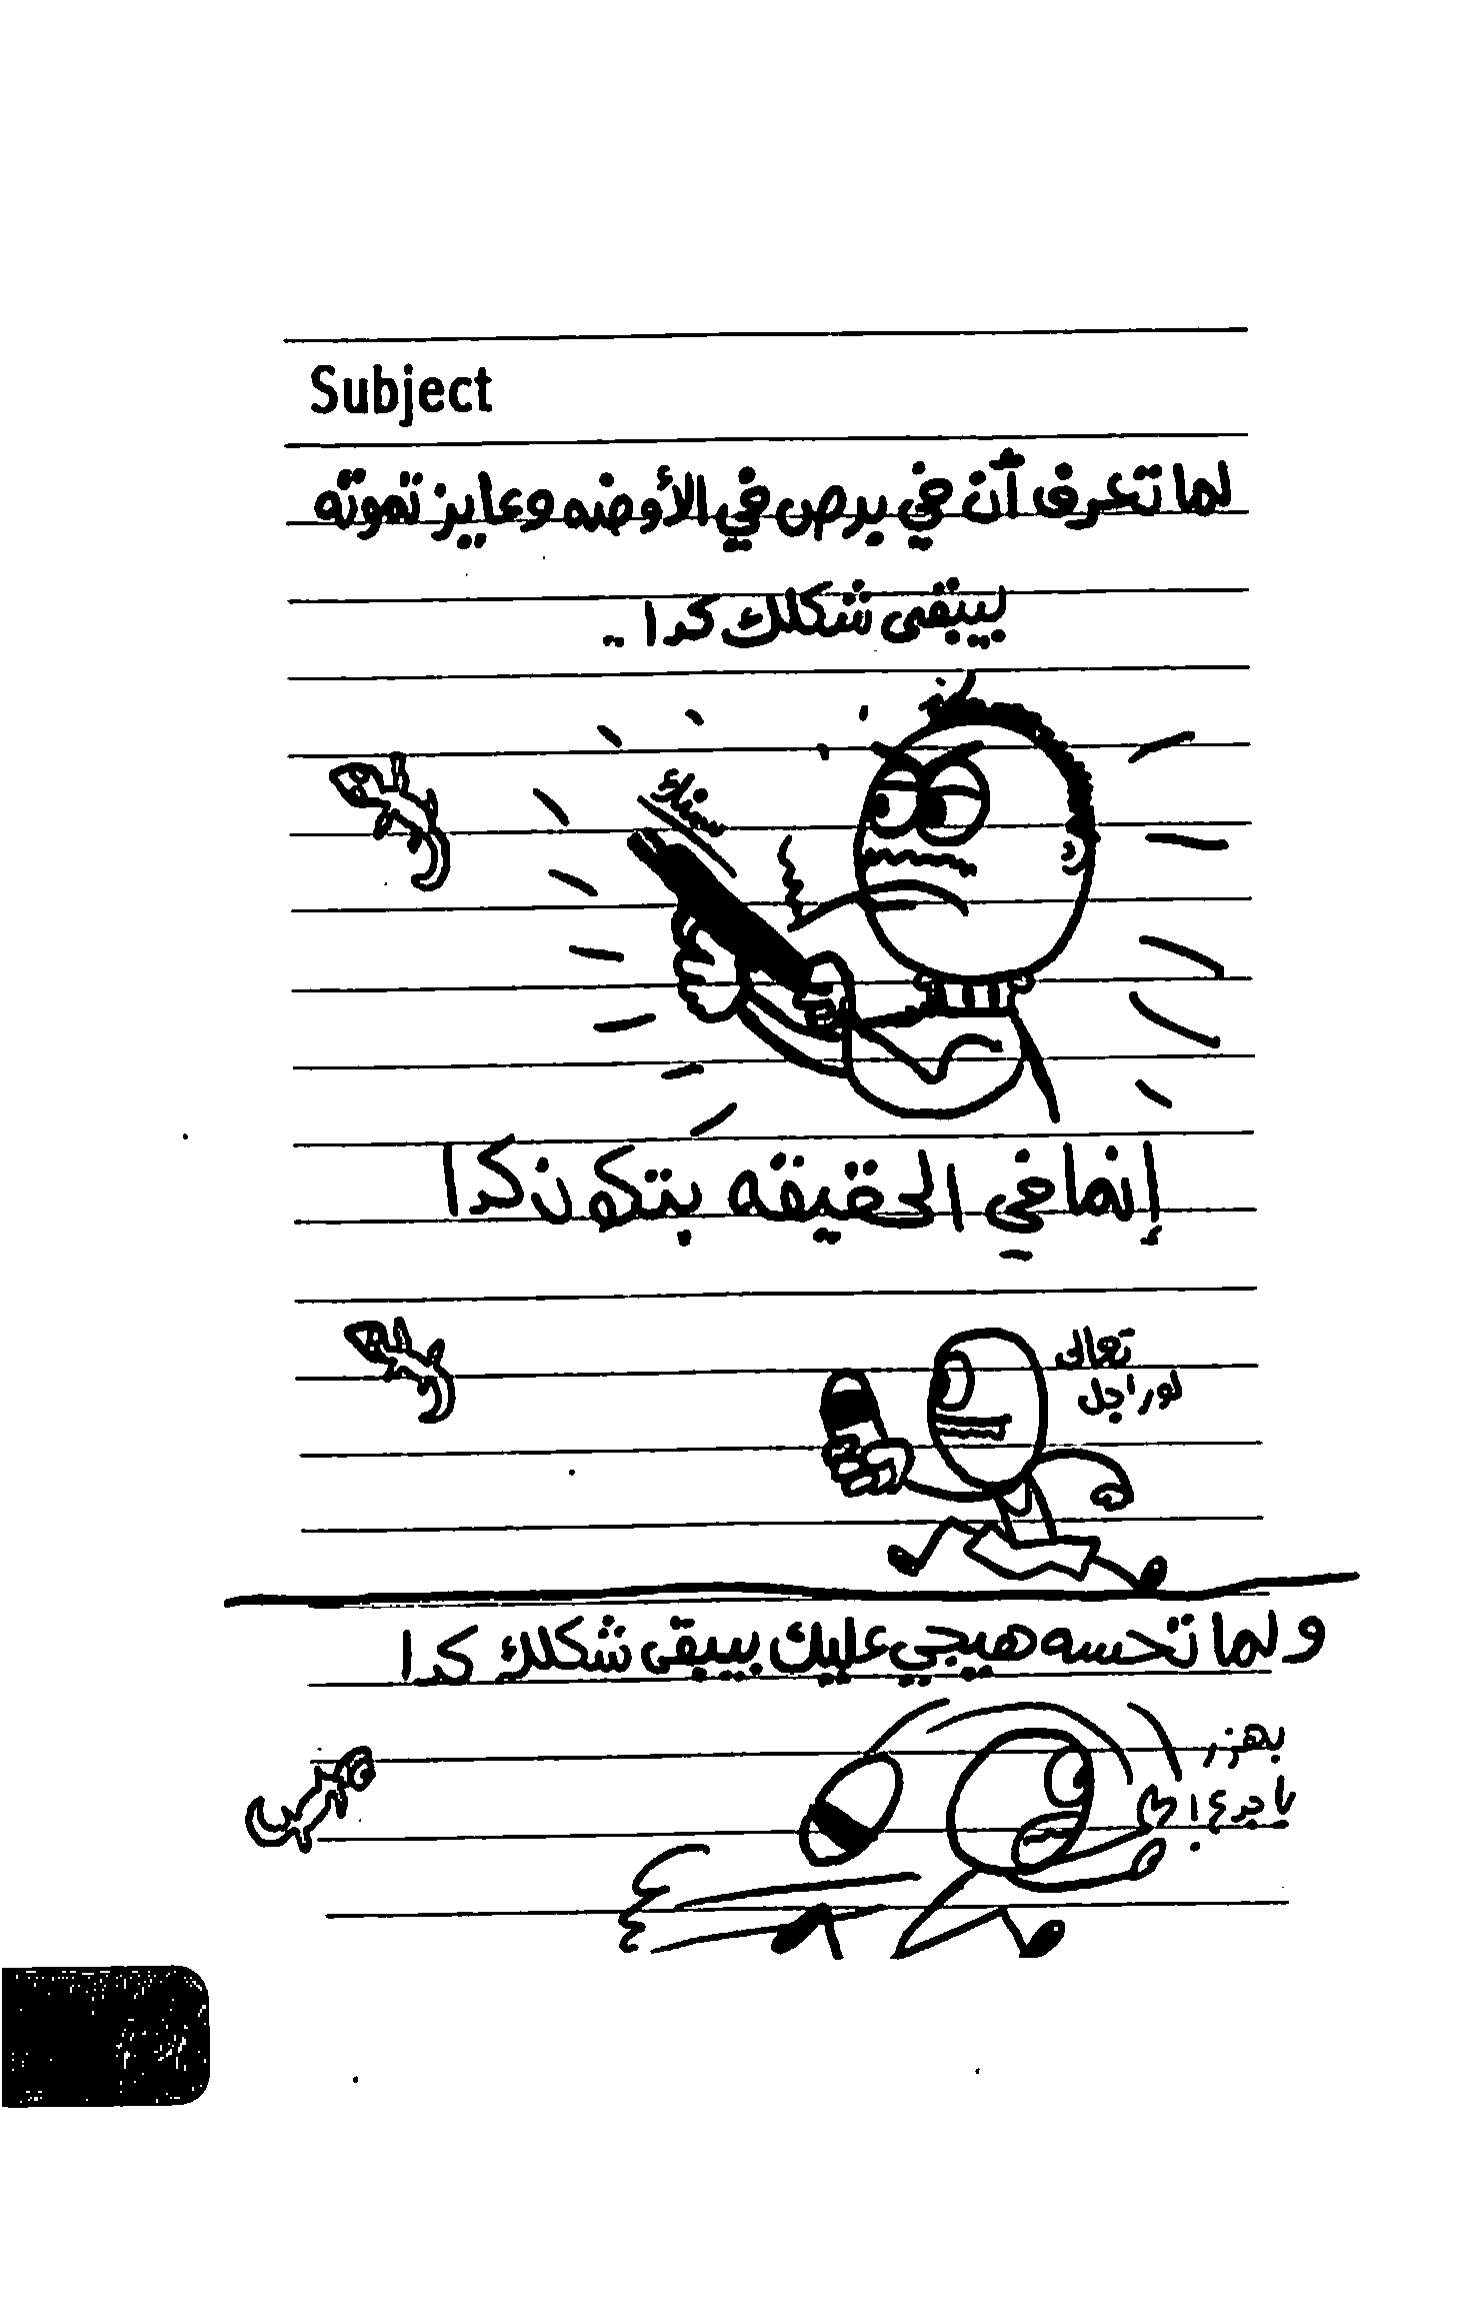 Subject
لما تعرف أن في برص في الأوضه وعايز تموته
بيبقى شكلك كدا ..
إنما في الحقيقه بتكون كدا
تعالى
لو راجل
ولما تحسه هيجي عليك بيبقى شكلك كدا
بهزر
يا جدع!